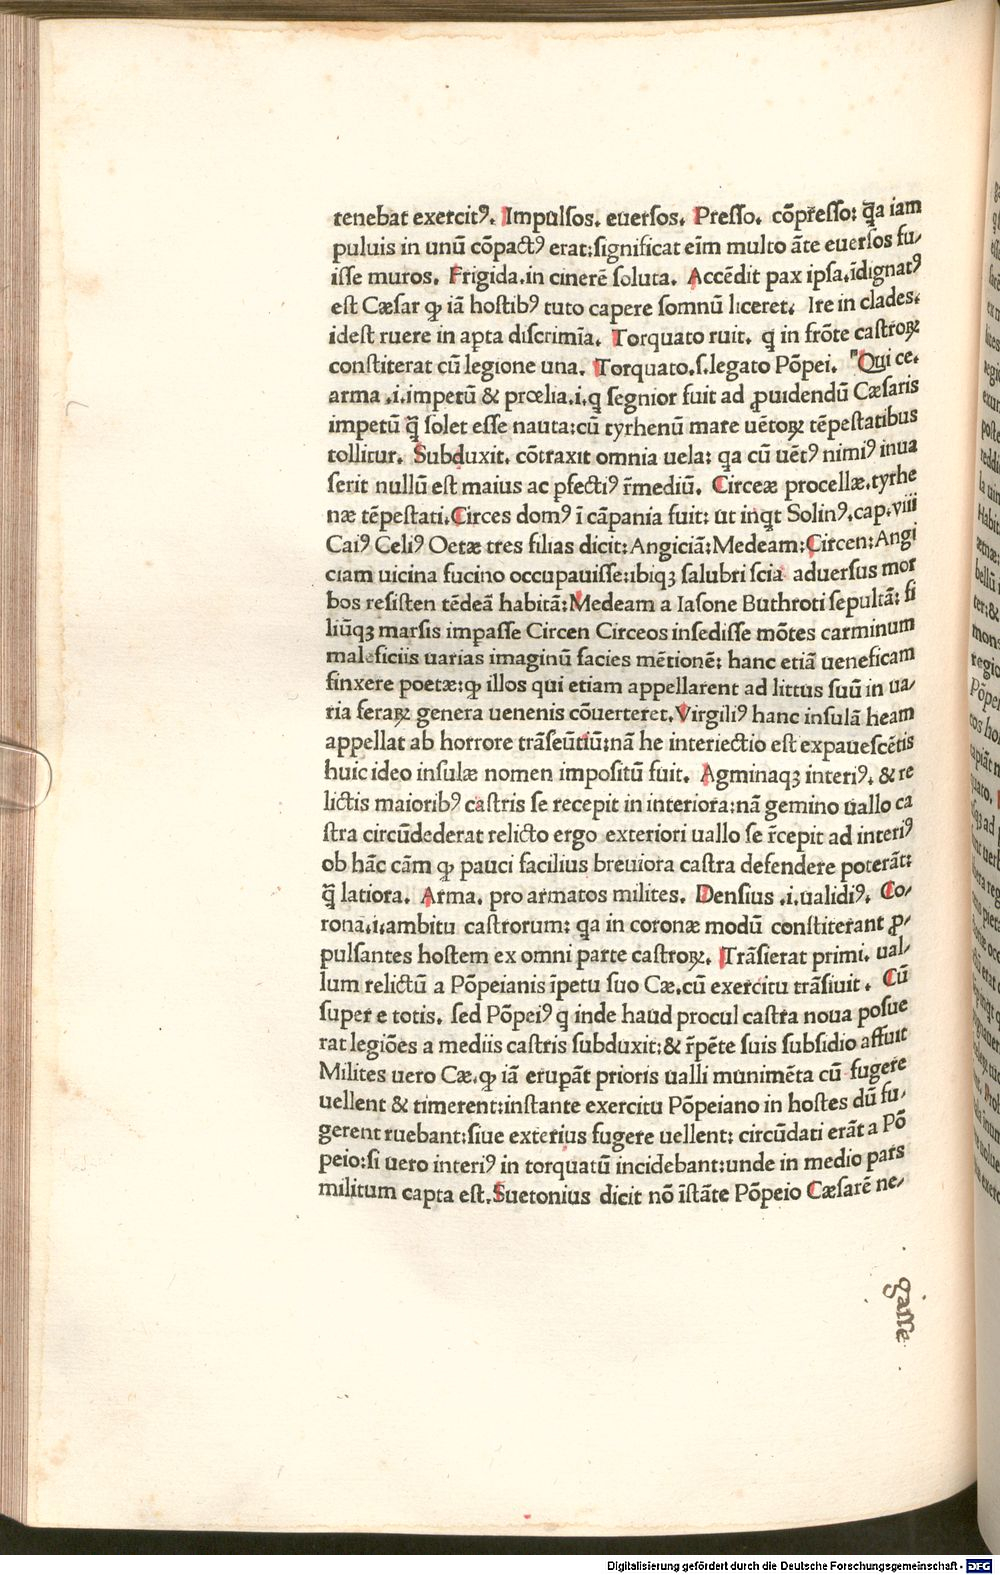 tenebat exercitꝰ. Impulſos. euerſos. Preſſo. cōpreſſo: q̄a iam
puluis in unū cōpactꝰ erat:ſignificat eīm multo āte euerſos fu/
iſſe muros. Frigida.in cinerē ſoluta. Accēdit pax ipſa.īdignatꝰ
eſt Cæſar ꝙ iā hoſtibꝰ tuto capere ſomnū liceret. Ire in clades.
ideſt ruere in apta diſcrimīa. Torquato ruit. q in frōte caſtroꝝ
conſtiterat cū legione una. Torquato.ſ.legato Pōpei. "Qui ce.
arma .i.impetū & prœlia.i.q ſegnior fuit ad ꝓuidendū Cæſaris
impetū q̄ ſolet eſſe nauta:cū tyrhenū mare uētoꝝ tēpeſtatibus
tollitur. Subduxit. cōtraxit omnia uela: qa cū uētꝰ nimiꝰ inua
ſerit nullū eſt maius ac pfectiꝰ r̄mediū. Circeæ procellæ.tyrhe
næ tēpeſtati.Circes domꝰ ī cāpania fuit: ut inqt Solinꝰ.cap.viii
Caiꝰ Celiꝰ Oetæ tres filias dicit:Angiciā:Medeam:Circen:Angi
ciam uicina fucino occupauiſſe:ibiqꝫ ſalubri ſcia aduerſus mor
bos reſiſten tēdeā habitā:Medeam a Iaſone Buthroti ſepultā: fi
liūqꝫ marſis impaſſe Circen Circeos inſediſſe mōtes carminum
maleficiis uarias imaginū facies mētionē: hanc etiā ueneficam
finxere poetæ:ꝙ illos qui etiam appellarent ad littus ſuū in ua/
ria feraꝝ genera uenenis cōuerteret.Virgiliꝰ hanc inſulā heam
appellat ab horrore trāſeūtiū:nā he interiectio eſt expaueſcētis
huic ideo inſulæ nomen impoſitū fuit. Agminaqꝫ interiꝰ. & re
lictis maioribꝰ caſtris ſe recepit in interiora:nā gemino uallo ca
ſtra circūdederat relicto ergo exteriori uallo ſe r̄cepit ad interiꝰ
ob hāc cām ꝙ pauci facilius breuiora caſtra defendere poterāt:
q̄ latiora. Arma. pro armatos milites. Denſius .i.ualidiꝰ. Co/
rona.i.ambitu caſtrorum: qa in coronæ modū conſtiterant ꝓ/
pulſantes hoſtem ex omni parte caſtroꝝ. Trāſierat primi. ual/
lum relictū a Pōpeianis īpetu ſuo Cæ.cū exercitu trāſiuit . Cū
ſuper e totis. ſed Pōpeiꝰ q inde haud procul caſtra noua poſue
rat legiōes a mediis caſtris ſubduxit:& r̄pēte ſuis ſubſidio affuit
Milites uero Cæ.ꝙ iā erupāt prioris ualli munimēta cū fugere
uellent & timerent:inſtante exercitu Pōpeiano in hoſtes dū fu/
gerent ruebant:ſiue exterius fugere uellent: circūdati erāt a Pō
peio:ſi uero interiꝰ in torquatū incidebant:unde in medio pars
militum capta eſt.Suetonius dicit nō īſtāte Pōpeio Cæſarē ne/
gaſſe
Digitalisierung gefördert durch die Deutsche Forschungsgemeinschaft - DFG